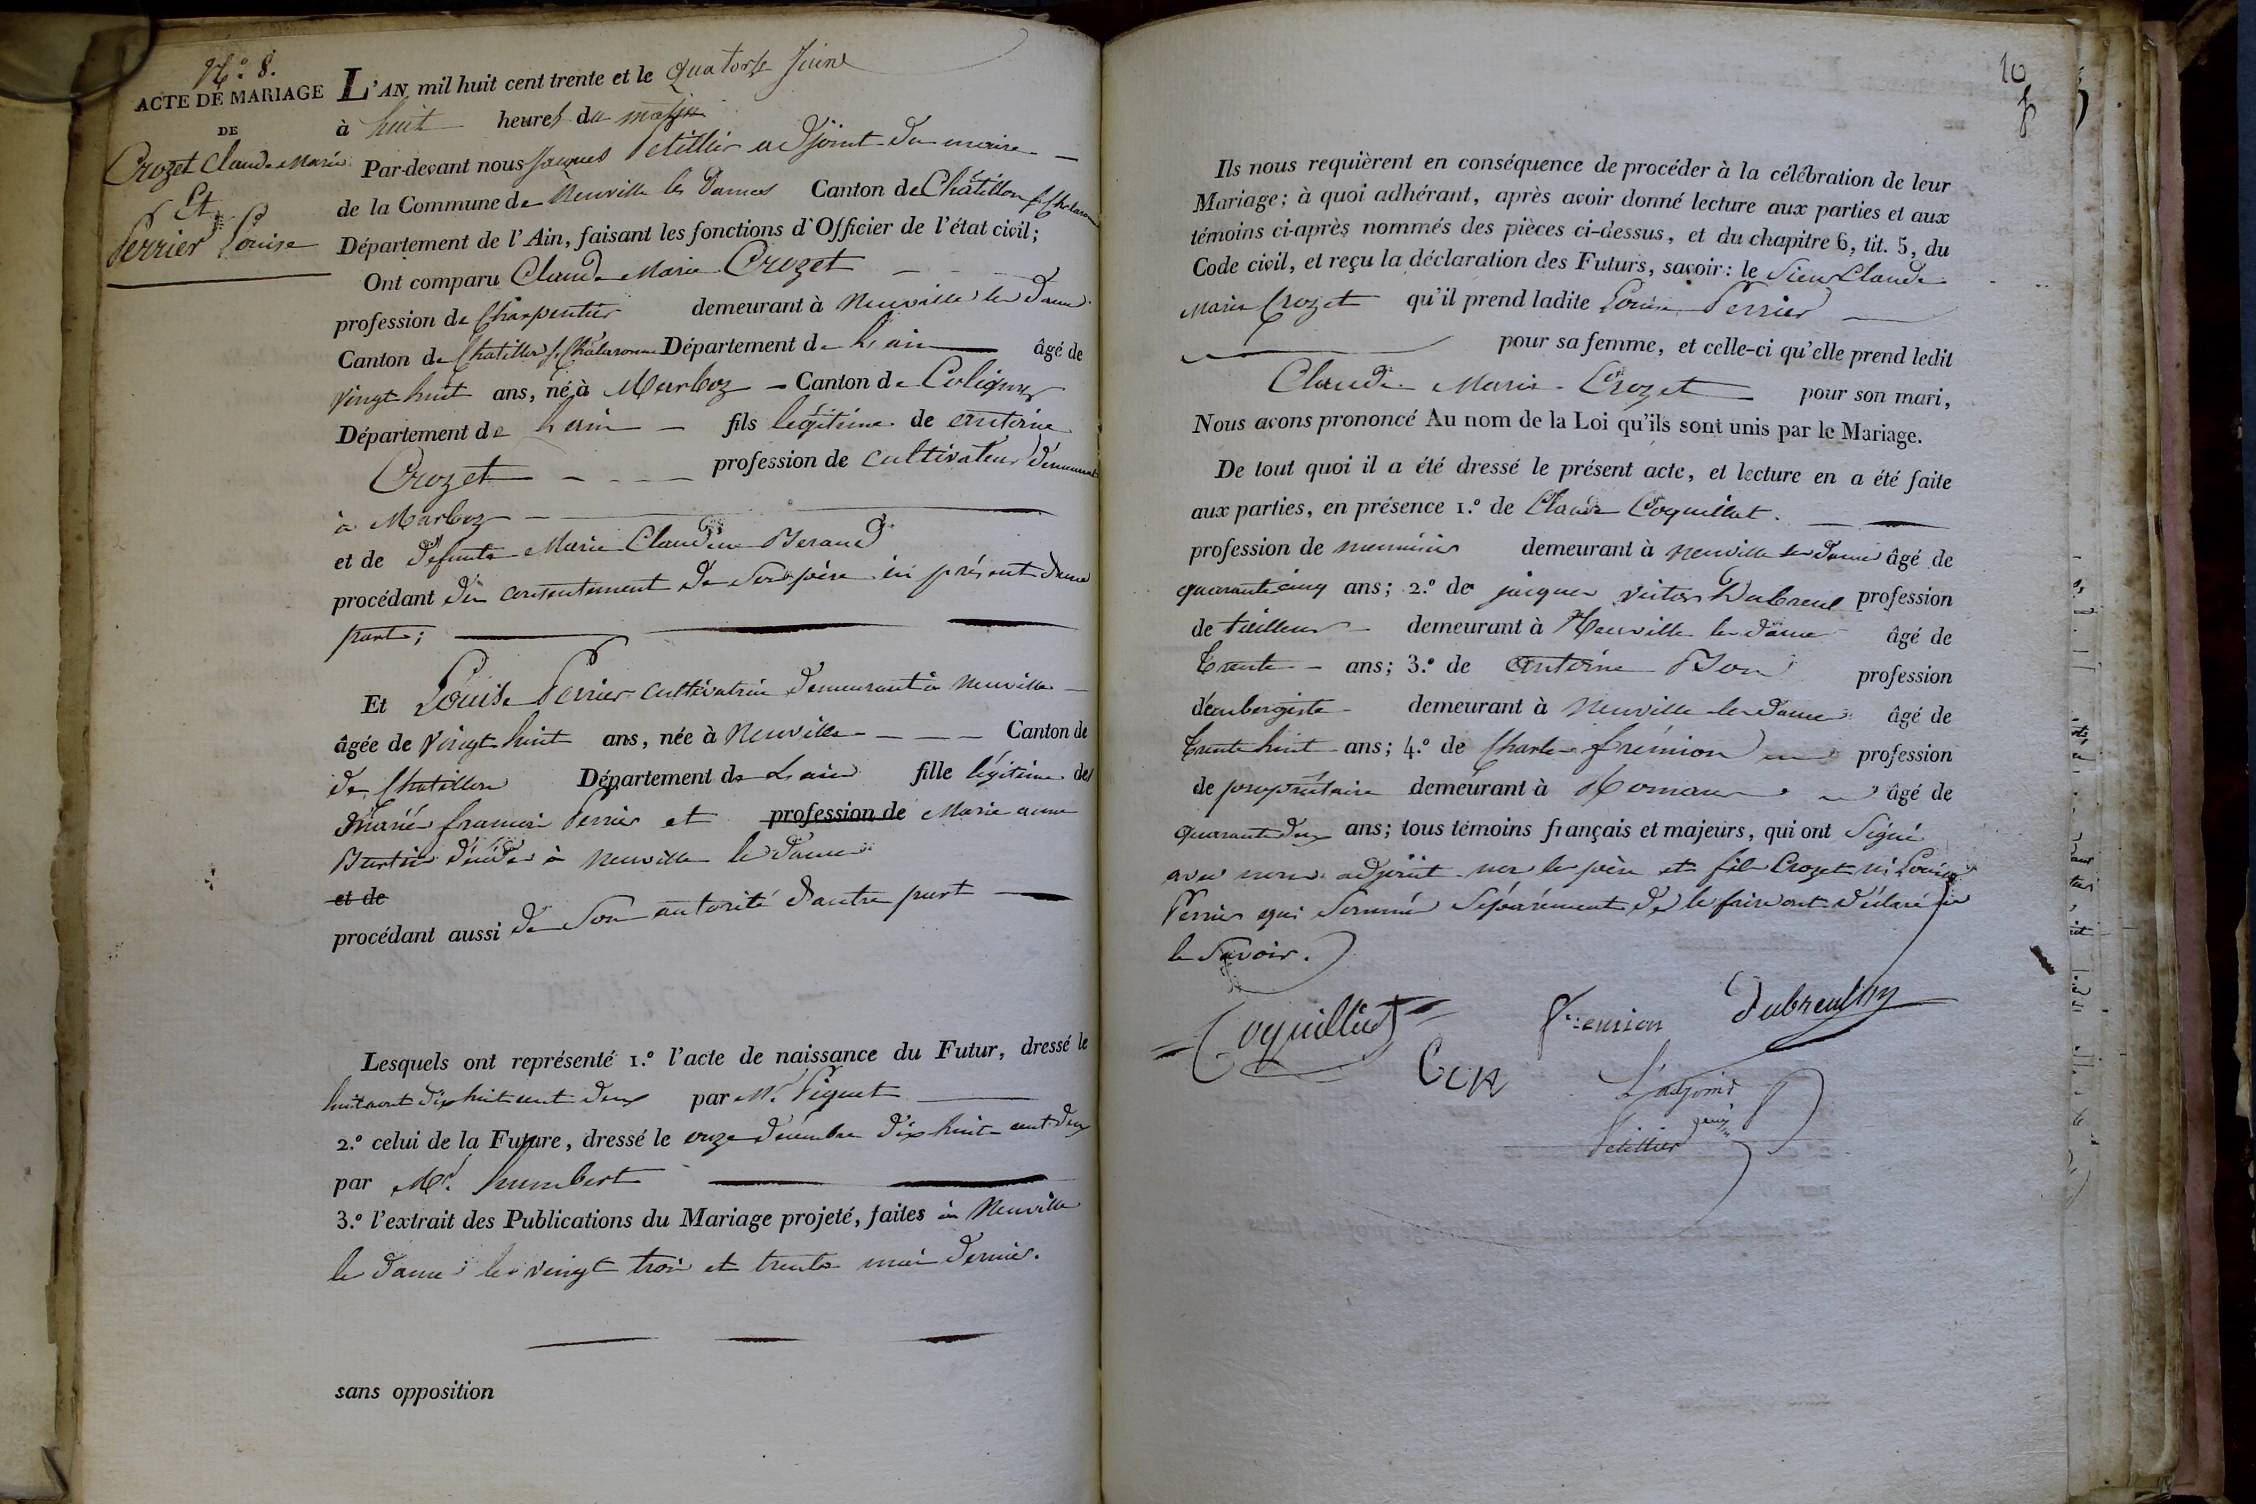 N.° 8.
ACTE DE MARIAGE
DE
Crozet Claude Marie
Et
Perrier Louise
L'AN mil huit cent trente et le quatorze Juin
à huit heures du matin
Par-devant nous Jacques Petillier adjoint du maire
de la Commune de Neuville les Dames Canton de Châtillon s/ Chalaronne
Département de l'Ain, faisant les fonctions d'Officier de l'état civil;
Ont comparu Claude Marie Crozet
profession de Charpentier demeurant à Neuville les Dames
Canton de Chatillon s/ Chalaronne Département de Lain âgé de
vingt huit ans, né à Marboz Canton de Coligny
Département de Lain fils légitime de antoine
Crozet profession de cultivateur demeurant
à Marboz
et de defunte Marie Claudine Beraud
procédant du consentement de son père ici présent d'une
part;
Et Louise Perrier cultivatrice demeurant à Neuville
âgée de vingt huit ans, née à Neuville Canton de
de Chatillon Département de Lain fille légitime des
mariés francois Perrier et profession de Marie anne
Burtin décédés à Neuville les dames
et de
procédant aussi de son autorité d'autre part
Lesquels ont représenté 1.° l'acte de naissance du Futur, dressé le
huit aout dix huit cent deux par Mr. Piquet
2.° celui de la Future, dressé le onze décembre dix huit cent deux
par Mr. humbert
3.° l'extrait des Publications du Mariage projeté, faites à Neuville
les dames les vingt trois et trente mai dernier.
sans opposition
10
Ils nous requièrent en conséquence de procéder à la célébration de leur
Mariage; à quoi adhérant, après avoir donné lecture aux parties et aux
témoins ci-après nommés des pièces ci-dessus, et du chapitre 6, tit. 5, du
Code civil, et reçu la déclaration des Futurs, savoir: le Sieur Claude
Marie Crozet qu'il prend ladite Louise Perrier
pour sa femme, et celle-ci qu'elle prend ledit
Claude Marie Crozet pour son mari,
Nous avons prononcé Au nom de la Loi qu'ils sont unis par le Mariage.
De tout quoi il a été dressé le présent acte, et lecture en a été faite
aux parties, en présence 1.° de Claude Coquillat.
profession de menuisier demeurant à Neuville les dames âgé de
quarante cinq ans; 2.° de jacques victor Dubreul profession
de tailleur demeurant à Neuville les dames âgé de
trente ans; 3.° de antoine Bon profession
d'aubergiste demeurant à Neuville les dames âgé de
trente huit ans; 4.° de Charles frémion profession
de propriétaire demeurant à Romans âgé de
quarante deux ans; tous témoins français et majeurs, qui ont Signé
avec nous adjoint non les père et fils Crozet ni Louise
Perrier qui sommés séparément de le faire ont déclaré ne
le savoir.
Coquilliat
fremion
Dubreul
L'adjoint
Petillier